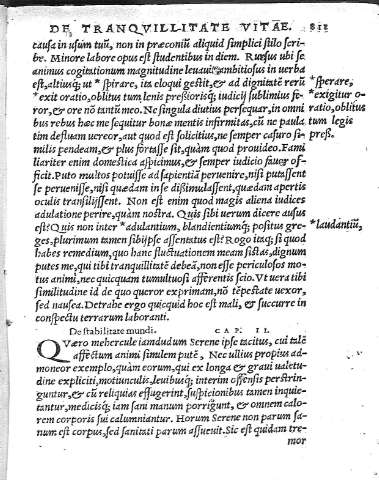 DE TRANQVILLITATE VITAE. 811
causa in usum tuũ, non in præconiũ aliquid simplici stilo scri-
be. Minore labore opus est studentibus in diem. Rursus ubi se
animus cogitationum magnitudine leuauit, ambitiosus in uerba
est, altiusq; ut * spirare, ita eloqui gestit, & ad dignitatẽ rerũ *sperare,
*exit oratio, oblitus tum lenis pressiorisq; iudicij sublimius fe- *exigitur o-
ror, & ore nõ tantũ meo. Ne singula diutius persequar, in omni ratio, oblitus
bus rebus hæc me sequitur bonæ mentis infirmitas, cũ ne paula tum legis
tim defluam uereor, aut quod est solicitius, ne semper casuro si- press.
milis pendeam, & plus fortasse sit, quàm quod prouideo. Fami
liariter enim domestica aspicimus, & semper iudicio fauor of-
ficit. Puto multos potuisse ad sapientiã peruenire, nisi putassent
se peruenisse, nisi quædam in se dissimulassent, quædam apertis
oculis transilissent. Non est enim quod magis aliena iudices
adulatione perire, quàm nostra. Quis sibi uerum dicere ausus
est? Quis non inter * adulantium, blandientiumq; positus gre- *laudantiũ,
ges, plurimum tamen sibijpse assentatus est? Rogo itaq; si quod
habes remedium, quo hanc fluctuationem meam sistas, dignum
putes me, qui tibi tranquillitatẽ debeã, non esse periculosos mo-
tus animi, nec quicquam tumultuosi afferentis scio. Vt uera tibi
similitudine id de quo queror exprimam, nõ tẽpestate uexor,
sed nausea. Detrahe ergo quicquid hoc est mali, & succurre in
conspectu terrarum laboranti.
De stabilitate mundi. CAP. II.
Quæro mehercule iamdudum Serene ipse tacitus, cui talẽ
affectum animi similem putẽ, Nec ullius propius ad-
moneor exemplo, quàm eorum, qui ex longa & graui ualetu-
dine expliciti, motiunculis, leuibusq; interim offensis perstrin-
guntur, & cũ reliquias effugerint, suspicionibus tamen inquie-
tantur, medicisq; iam sani manum porrigunt, & omnem calo-
rem corporis sui calumniantur. Horum Serene non parum sa-
num est corpus, sed sanitati parum assueuit. Sic est quidam tre-
mor